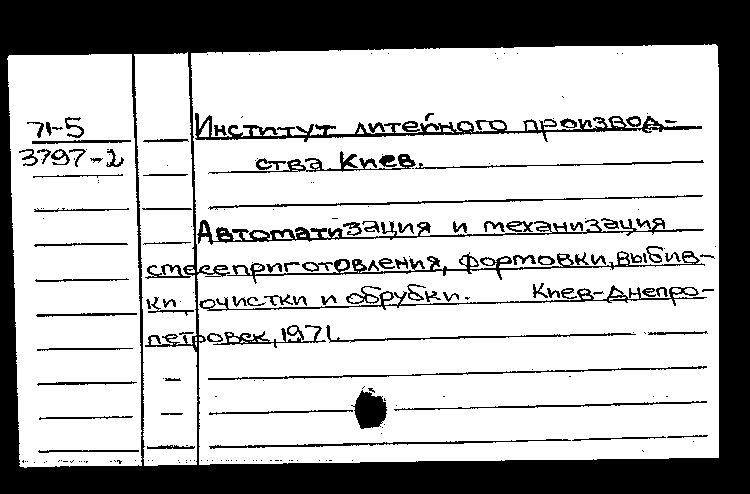 71-5
3797-2
Институт литейного производ-
ства. Киев.
Автоматизация и механизация
смесеприготовления, формовки, выбив-
ки, очистки и обрубки. Киев-Днепро-
петровск, 1971.